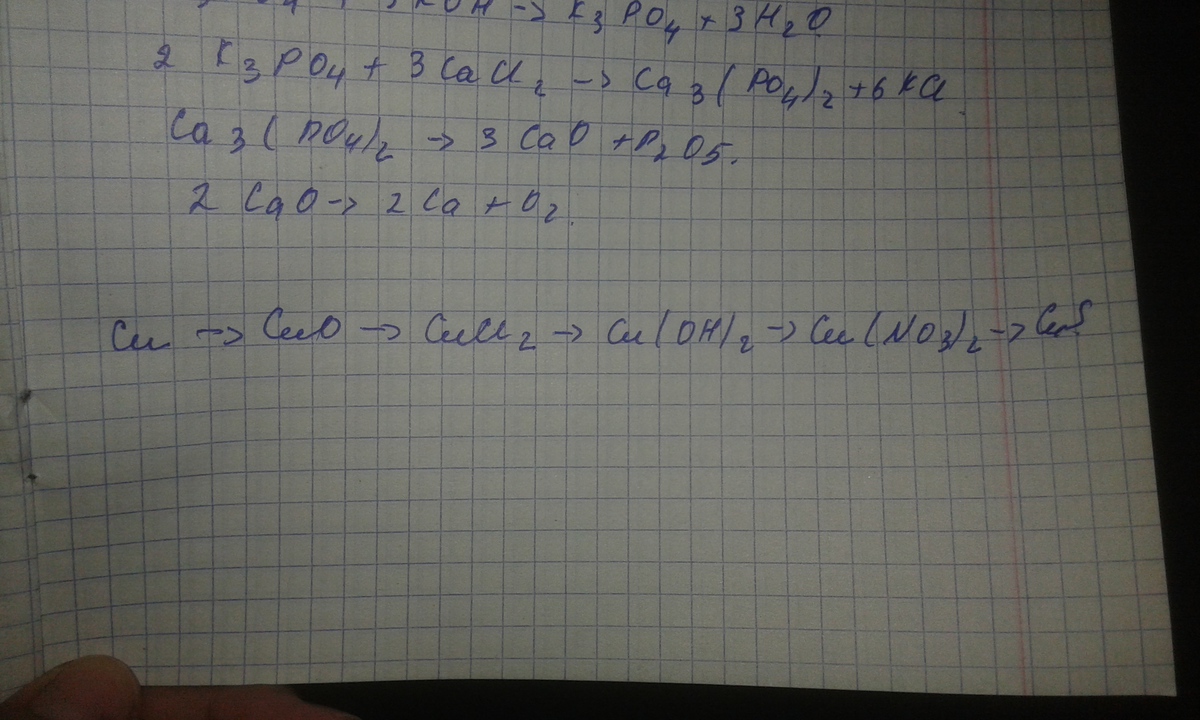 KOH -> K3PO4 + 3H2O
2 K3PO4 + 3CaCl2 -> Ca3(PO4)2 + 6KCl
Ca3(PO4)2 -> 3CaO + P2O5.
2CaO -> 2Ca + O2.
Cu -> CuO -> CuCl2 -> Cu(OH)2 -> Cu(NO3)2 -> CuS